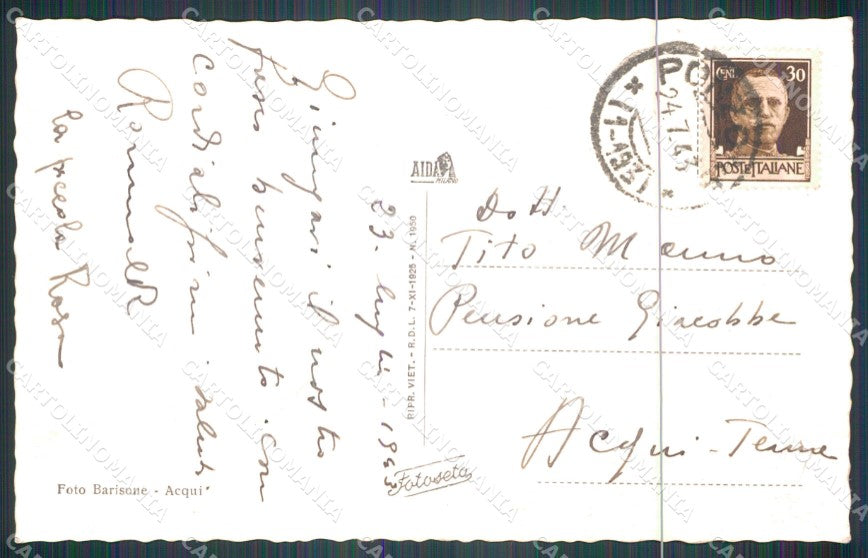 Giungavi il nostro
fresco benvenuto con
cordialissimi saluti
Romualdo
la piccola Rosa
23 luglio - 1943
Foto Barisone - Acqui
AIDA
MILANO
RIPR. VIET. - R.D.L. 7-XI-1925 - N. 1950
Fotoseta
CENT. 30
POSTE ITALIANE
24.7.43
Dott.
Tito Manno
Pensione Giacobbe
Acqui - Terme
CARTOLINOMANIA